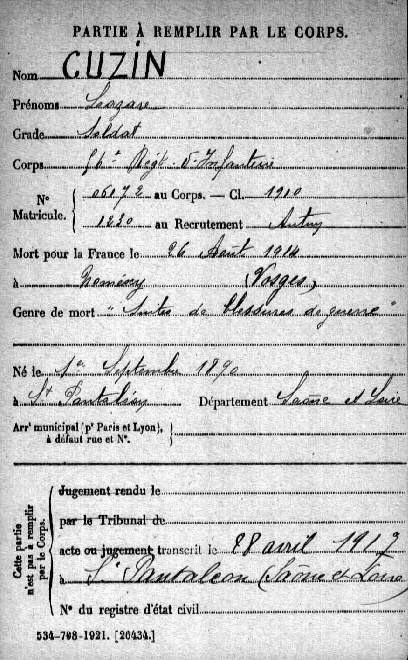 PARTIE À REMPLIR PAR LE CORPS.
Nom CUZIN
Prénoms Lazare
Grade Soldat
Corps 56e Régt d'Infanterie
N° Matricule. { 06172 au Corps. — Cl. 1910
1230 au Recrutement Autun
Mort pour la France le 26 Août 1914
à (Vosges)
Genre de mort "Suites de blessures de guerre"
Né le 1er Septembre 1890
à St Pantaléon Département Saône et Loire
Arrt municipal (pr Paris et Lyon), à défaut rue et N°.
Cette partie n'est pas à remplir par le Corps.
Jugement rendu le
par le Tribunal de
acte ou jugement transcrit le 28 avril 1917
à St Pantaléon (Saône et Loire)
N° du registre d'état civil
534-708-1921. [26434.]